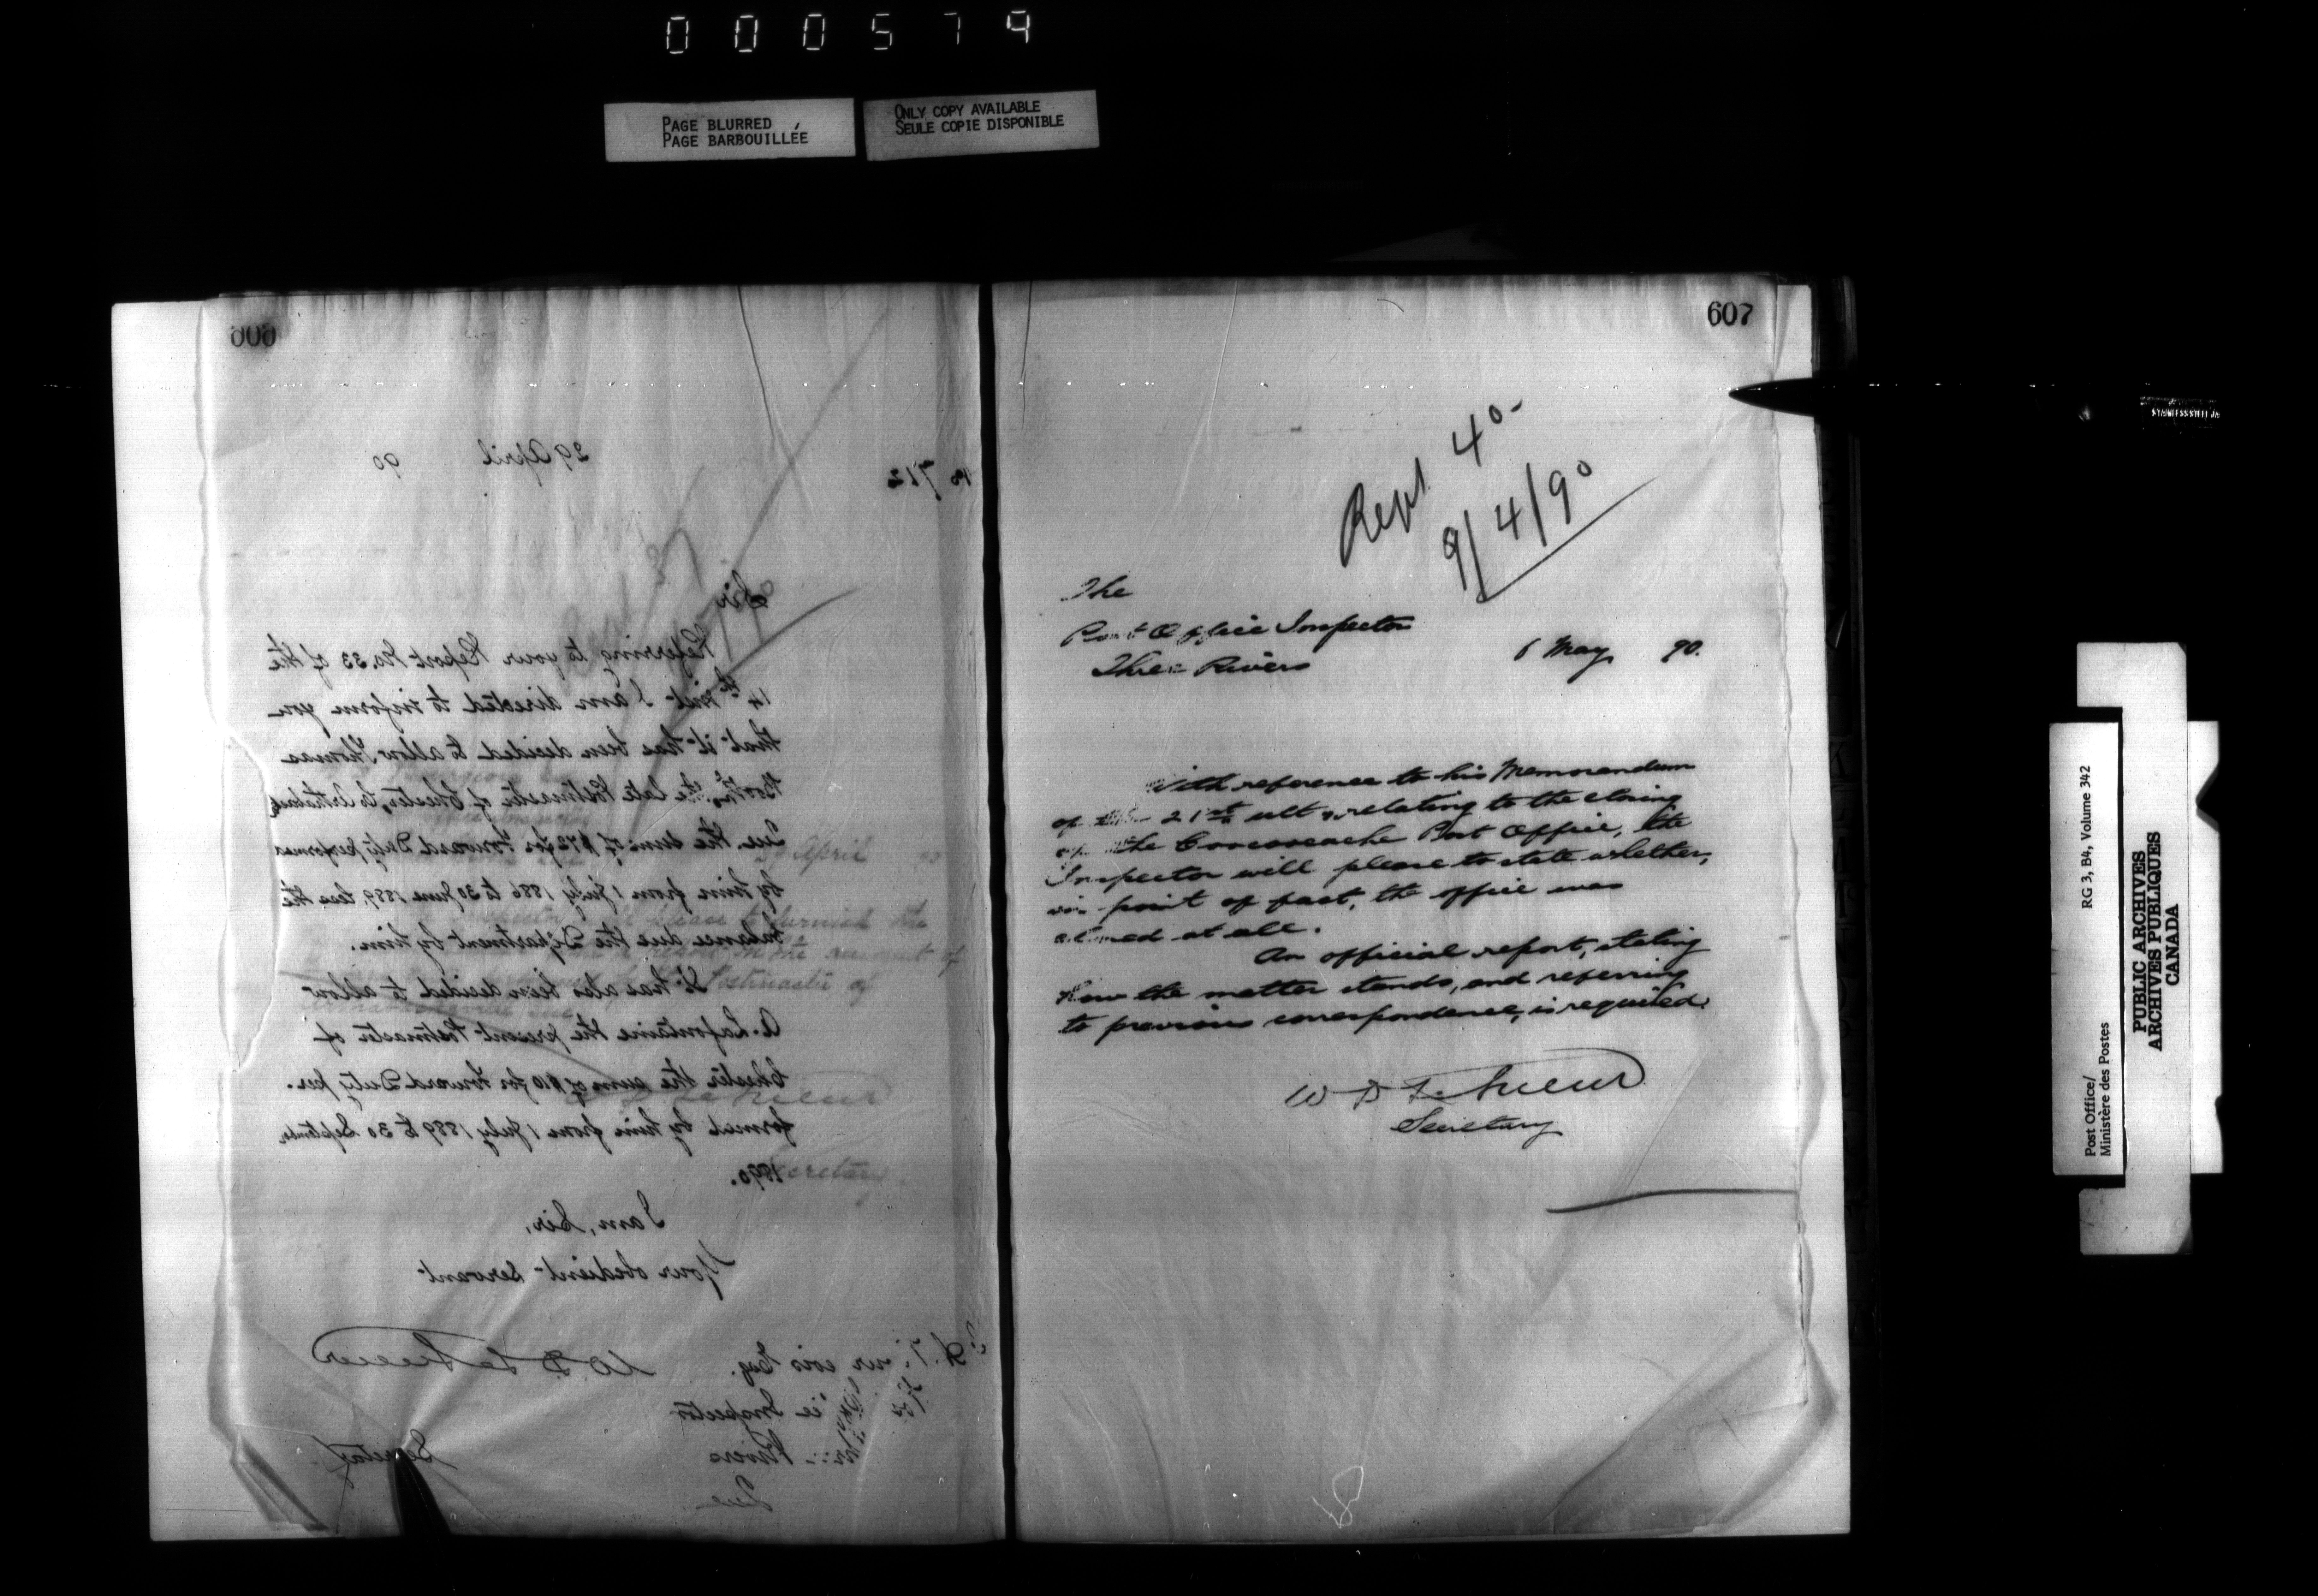 000579
PAGE BLURRED
PAGE BARBOUILLÉE
ONLY COPY AVAILABLE
SEULE COPIE DISPONIBLE
606
No 712
29 April 90
Sir
Referring to your Report No. 33 of the
14th inst I am directed to inform you
that it has been decided to allow Thomas
the late Postmaster of Chester,
Que. the sum of $72 for Forward Duty performed
by him from 1 July 1886 to 30 June 1889, less the
balance due the Department by him.
It has also been decided to allow
A. Lafontaine the present Postmaster of
Chester the sum of $10 for Forward Duty per-
formed by him from 1 July 1889 to 30 September
1890.
I am, Sir,
Your obedient Servant
W D LeSueur
Secretary
Esq.
Inspector
Rivers
Que
607
Rept 40-
9/4/90
The
Post Office Inspector
Three Rivers
6 May 90.
With reference to his Memorandum
of the 21st ult relating to the closing
of the Coocoocache Post Office, the
Inspector will please to state whether,
in point of fact, the office was
closed at all.
An official report, stating
how the matter stands, and referring
to previous correspondence, is required.
W D LeSueur
Secretary
Post Office/
Ministère des Postes
RG 3, B4, Volume 342
PUBLIC ARCHIVES
ARCHIVES PUBLIQUES
CANADA